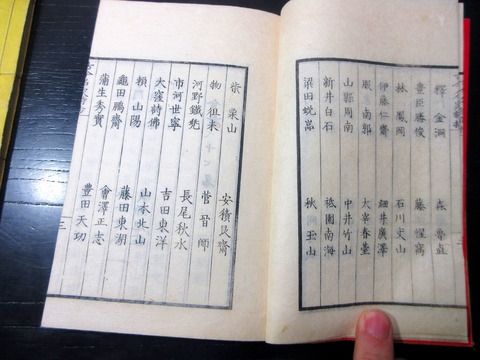 釋 金 森魯直
章臣勝俊 藤 惺窩
林 鳳岡 石川丈山
伊藤仁齋 細井廣澤
服 南郭 太宰春臺
山縣周南 中井竹山
新井白石 祗園南海
梁田蛻嵓 秋 玉山
柴栗山 安積艮齋
物徂來 菅晉師
河野鐵兜 長尾秋水
市河世寧 吉田東洋
大窪詩佛 山本北山
賴山陽 藤田東湖
龜田鵬齋 會澤正志
蒲生秀實 豐田天功
三